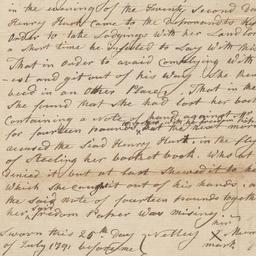 in the evening of the Twenty Second Da
Henry Hurst came to the Deponants Ho
order to take Lodgings with her Landlor
a short time he Insisted to Lay with this
That in order to avoid Complying with
-est and git out of his way She then
bed in an other Place. That in the
She found that She had lost her
Containing a Note of hand against
for fourteen pounds, that the next mor
accused the Said Henry Hurst, in the
of Steeling her pocket book, Who at
denied it but at last Shewed it to he
Which She caught out of his hands, a
the said note of fourteen Pounds togeth
her Said freedom Paper Was missing.
Sworn this 25th Day
of July 1791 before me
Nelley X
her
mark